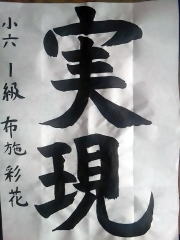 実現
小六 一級 布施彩花